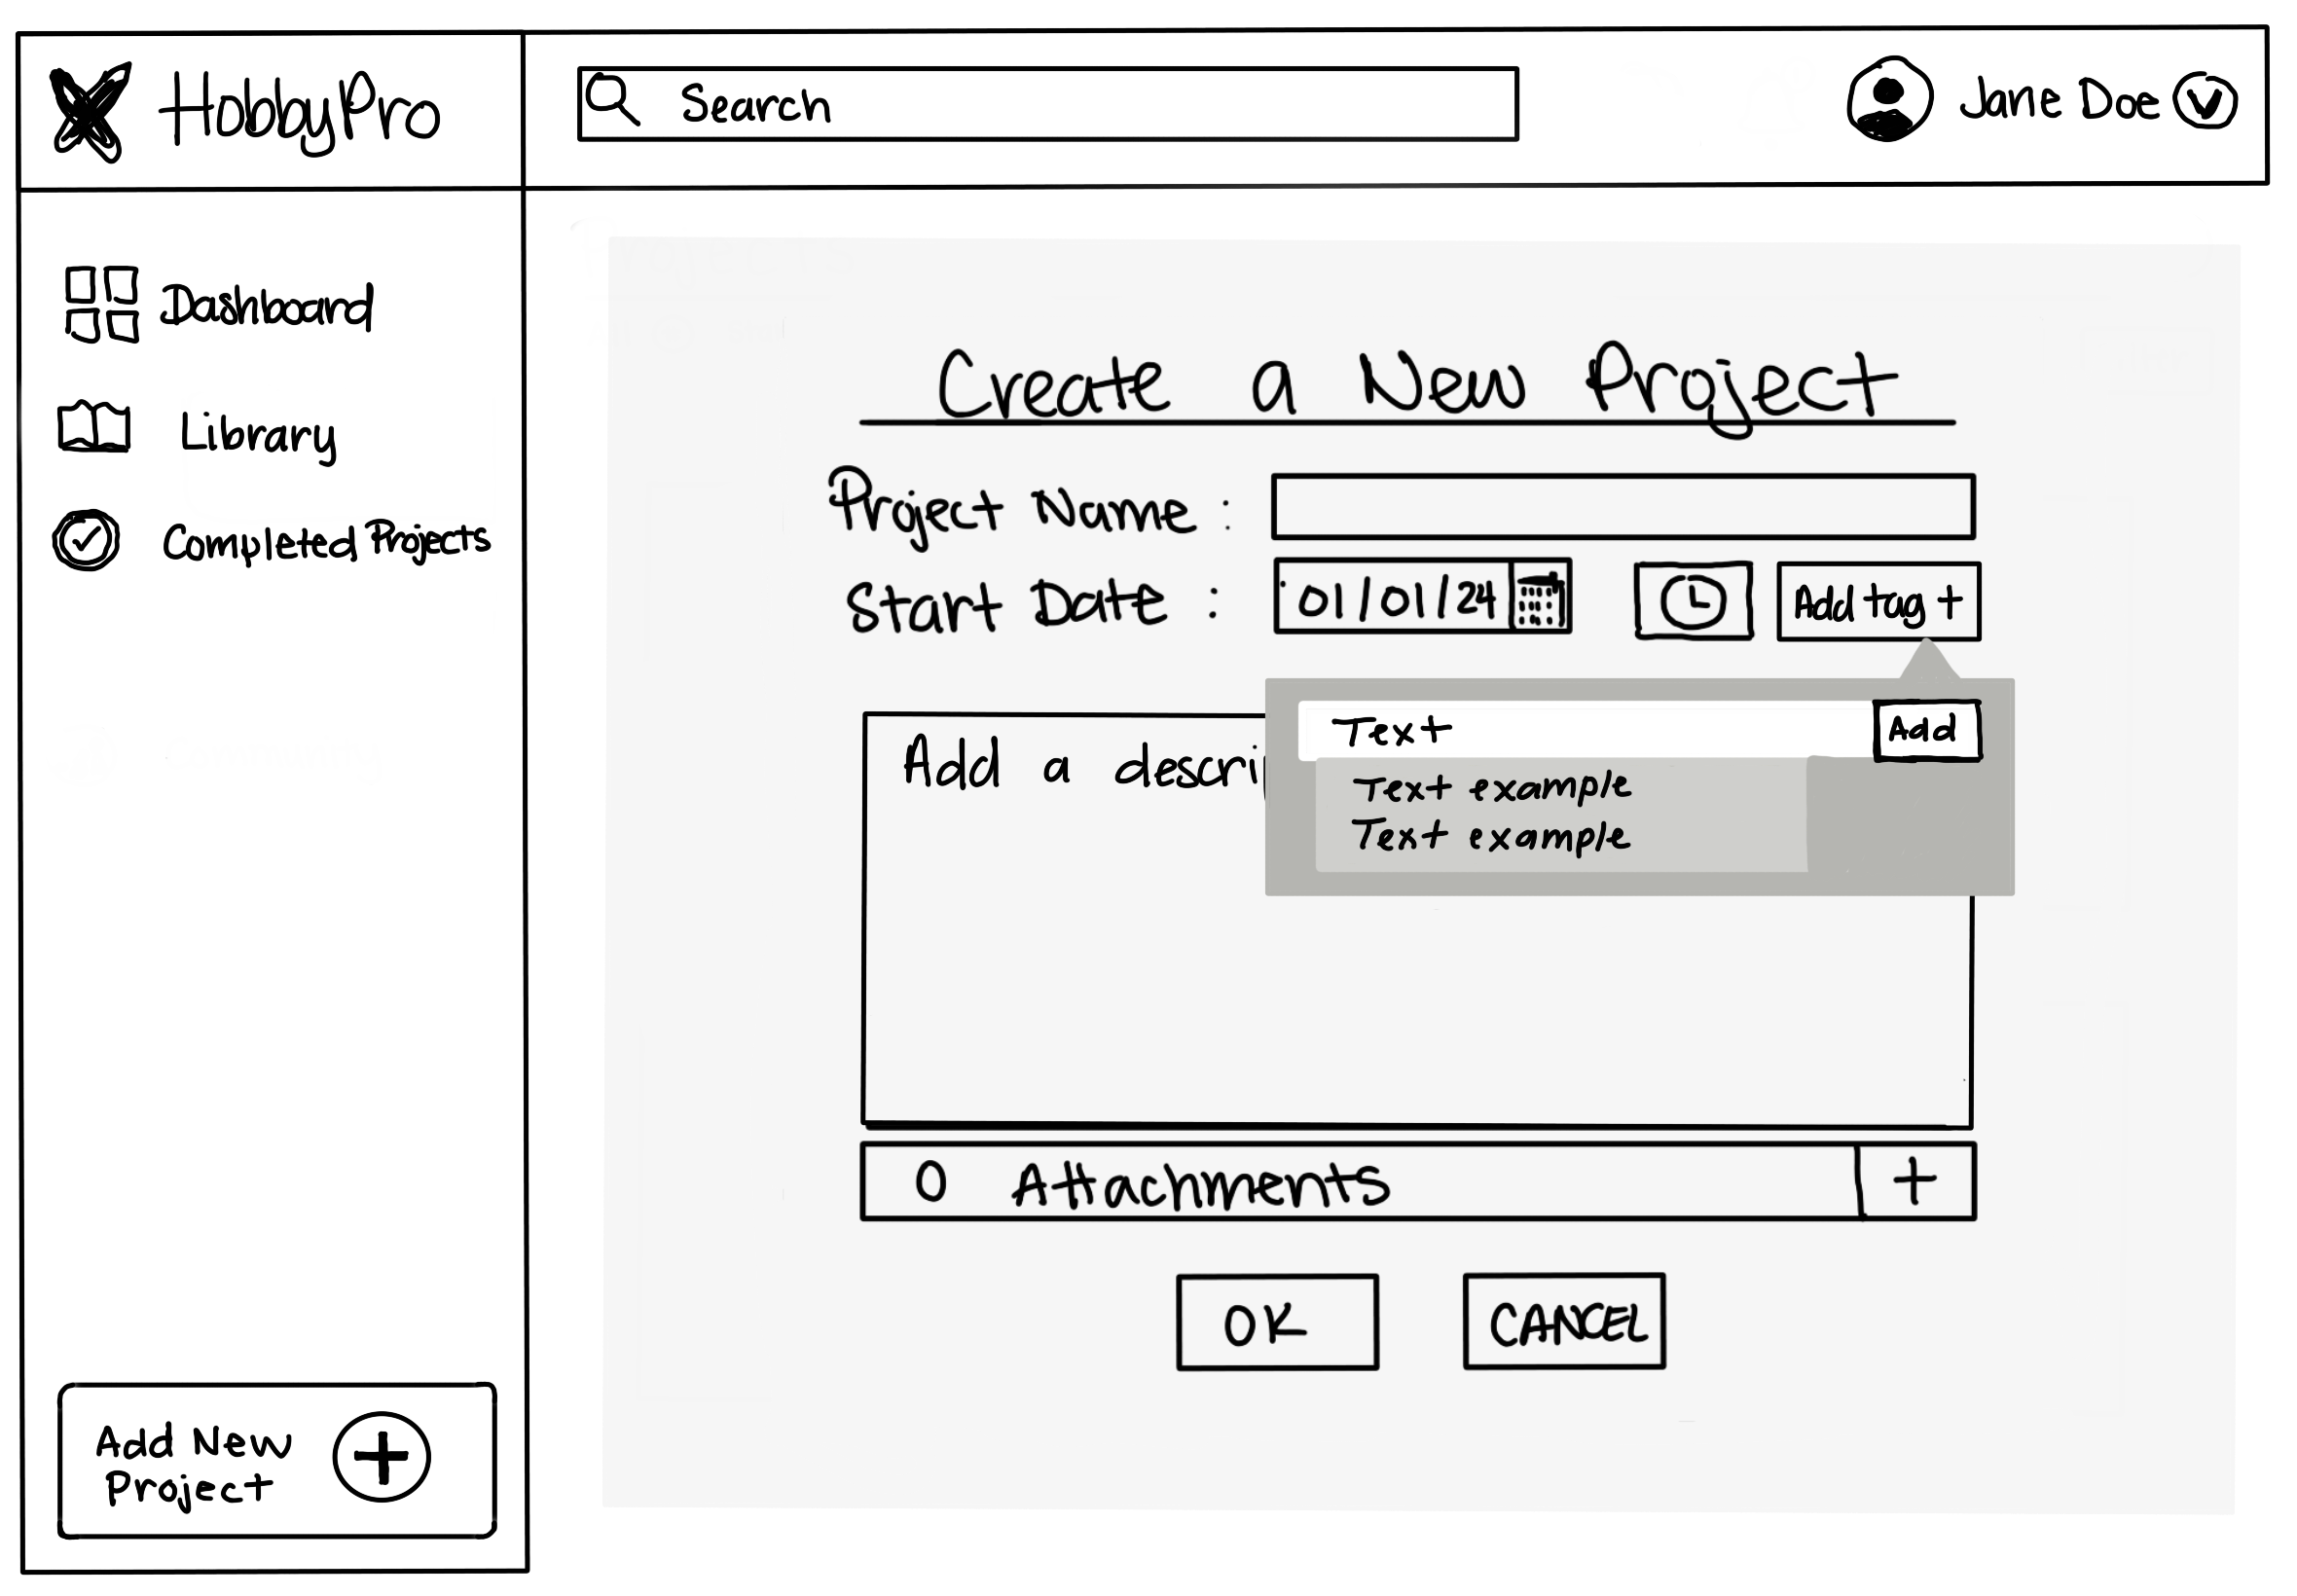 HobbyPro
Search
Jane Doe
Dashboard
Library
Completed Projects
Add New
Project
Create a New Project
Project Name :
Start Date : 01/01/24
Add tag +
Text
Add
Text example
Text example
Add a descri
0 Attachments +
OK
CANCEL